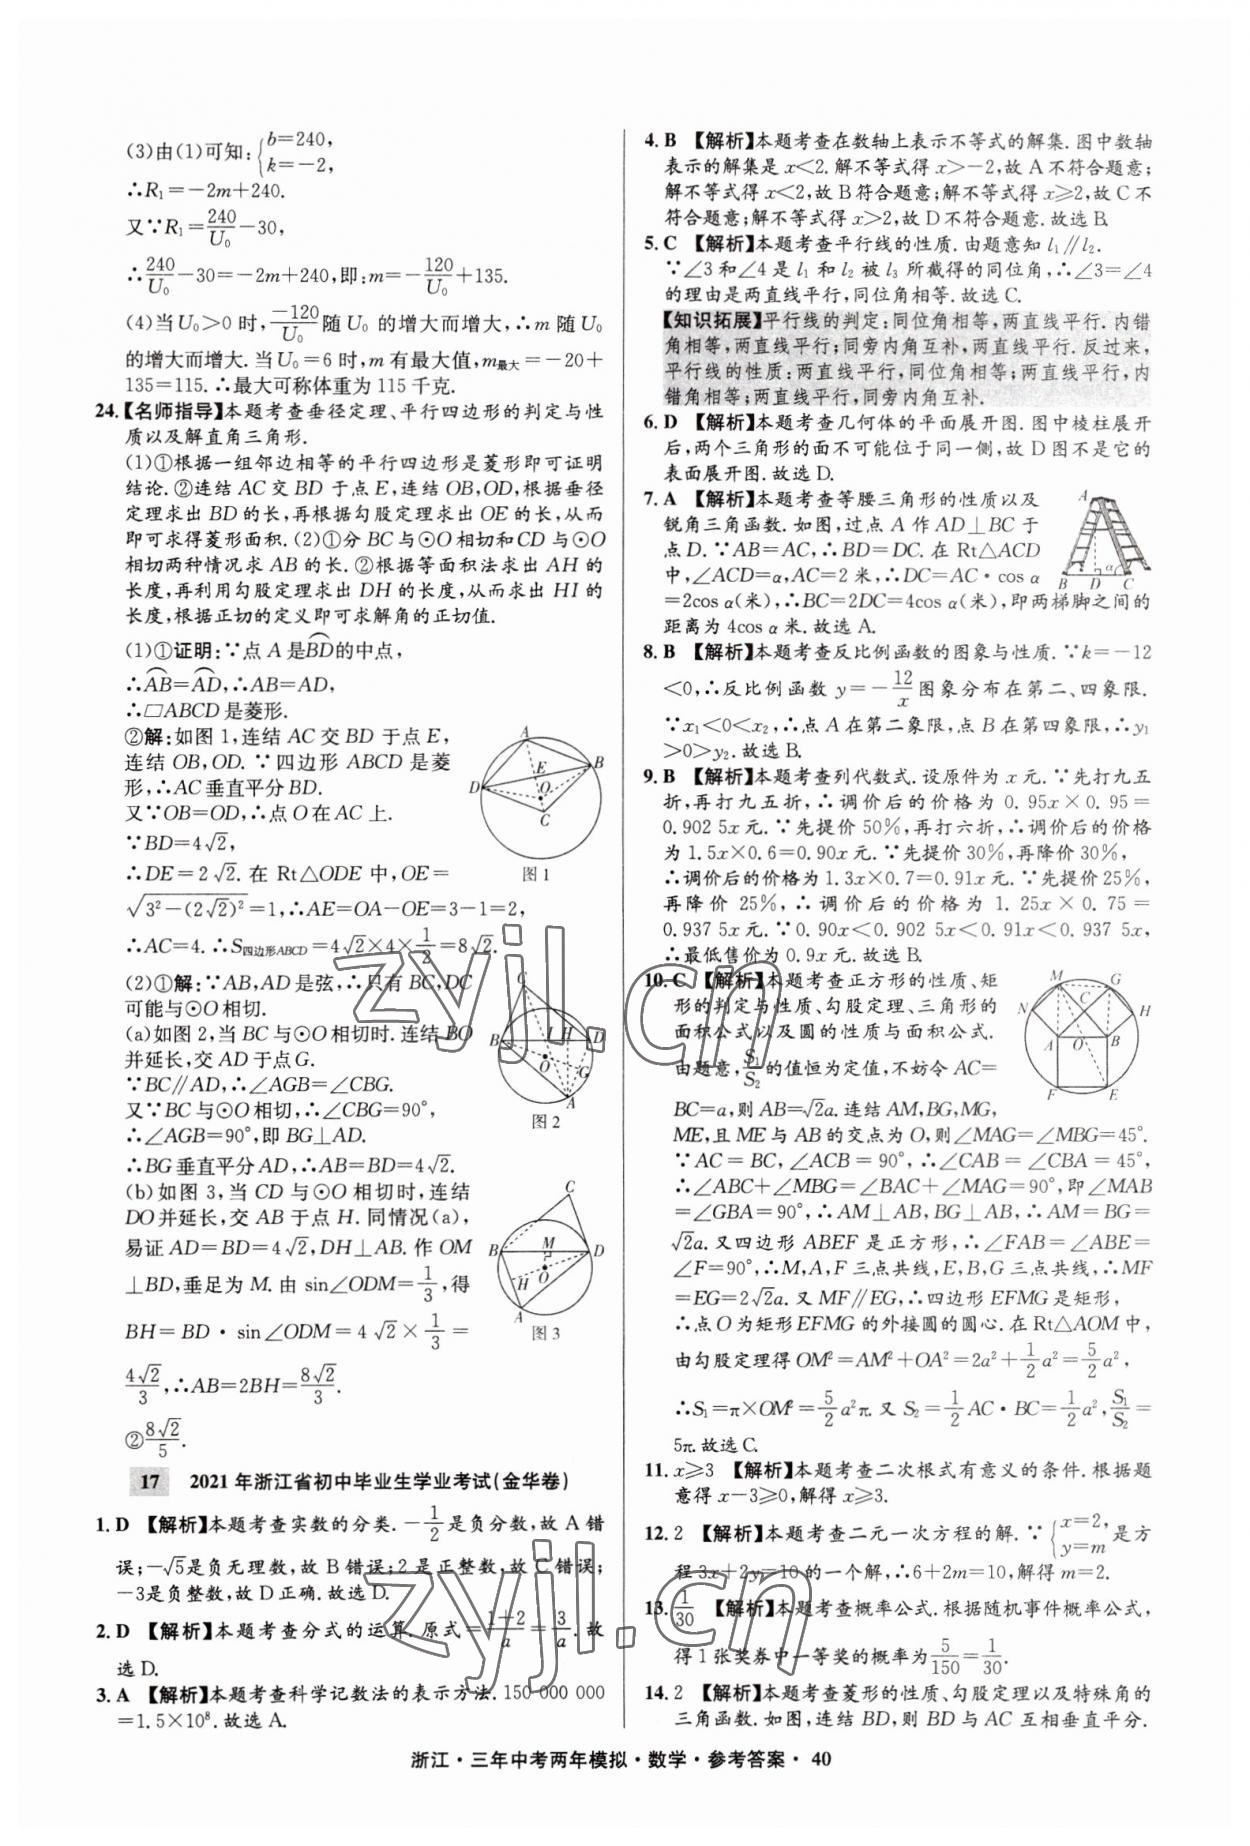 (3)由(1)可知:{b=240, k=-2,
∴R₁=-2m+240.
又∵R₁=240/U₀-30,
∴240/U₀-30=-2m+240,即:m=-120/U₀+135.
(4)当U₀>0时,-120/U₀随U₀的增大而增大,∴m随U₀
的增大而增大.当U₀=6时,m有最大值,m最大=-20+
135=115.∴最大可称体重为115千克.
24.【名师指导】本题考查垂径定理、平行四边形的判定与性
质以及解直角三角形.
(1)①根据一组邻边相等的平行四边形是菱形即可证明
结论.②连结AC交BD于点E,连结OB,OD,根据垂径
定理求出BD的长,再根据勾股定理求出OE的长,从而
即可求得菱形面积.(2)①分BC与⊙O相切和CD与⊙O
相切两种情况求AB的长.②根据等面积法求出AH的
长度,再利用勾股定理求出DH的长度,从而求出HI的
长度,根据正切的定义即可求解角的正切值.
(1)①证明:∵点A是BD⌒的中点,
∴AB⌒=AD⌒,∴AB=AD,
∴□ABCD是菱形.
②解:如图1,连结AC交BD于点E,
连结OB,OD.∵四边形ABCD是菱
形,∴AC垂直平分BD.
又∵OB=OD,∴点O在AC上.
∵BD=4√2,
∴DE=2√2.在Rt△ODE中,OE=
√(3²-(2√2)²)=1,∴AE=OA-OE=3-1=2,
∴AC=4.∴S四边形ABCD=4√2×4×1/2=8√2.
A
E
B
D
O
C
图1
(2)①解:∵AB,AD是弦,∴只有BC,DC
可能与⊙O相切.
(a)如图2,当BC与⊙O相切时.连结BO
并延长,交AD于点G.
∵BC∥AD,∴∠AGB=∠CBG.
又∵BC与⊙O相切,∴∠CBG=90°,
∴∠AGB=90°,即BG⊥AD.
∴BG垂直平分AD,∴AB=BD=4√2.
C
B
I
H
D
O
G
A
图2
(b)如图3,当CD与⊙O相切时,连结
DO并延长,交AB于点H.同情况(a),
易证AD=BD=4√2,DH⊥AB.作OM
⊥BD,垂足为M.由sin∠ODM=1/3,得
BH=BD·sin∠ODM=4√2×1/3=
4√2/3,∴AB=2BH=8√2/3.
②8√2/5.
C
B
M
D
H
O
A
图3
17 2021年浙江省初中毕业生学业考试(金华卷)
1. D 【解析】本题考查实数的分类.-1/2是负分数,故A错
误;-√5是负无理数,故B错误;2是正整数,故C错误;
-3是负整数,故D正确.故选D.
2. D 【解析】本题考查分式的运算.原式=(1+2)/a=3/a.故
选D.
3. A 【解析】本题考查科学记数法的表示方法.150 000 000
=1.5×10⁸.故选A.
4. B 【解析】本题考查在数轴上表示不等式的解集.图中数轴
表示的解集是x<2.解不等式得x>-2,故A不符合题意;
解不等式得x<2,故B符合题意;解不等式得x≥2,故C不
符合题意;解不等式得x>2,故D不符合题意.故选B.
5. C 【解析】本题考查平行线的性质.由题意知l₁∥l₂.
∵∠3和∠4是l₁和l₂被l₃所截得的同位角,∴∠3=∠4
的理由是两直线平行,同位角相等.故选C.
【知识拓展】平行线的判定:同位角相等,两直线平行.内错
角相等,两直线平行;同旁内角互补,两直线平行.反过来,
平行线的性质:两直线平行,同位角相等;两直线平行,内
错角相等;两直线平行,同旁内角互补.
6. D 【解析】本题考查几何体的平面展开图.图中棱柱展开
后,两个三角形的面不可能位于同一侧,故D图不是它的
表面展开图.故选D.
7. A 【解析】本题考查等腰三角形的性质以及
锐角三角函数.如图,过点A作AD⊥BC于
点D.∵AB=AC,∴BD=DC.在Rt△ACD
中,∠ACD=α,AC=2米,∴DC=AC·cos α
=2cos α(米),∴BC=2DC=4cos α(米),即两梯脚之间的
距离为4cos α米.故选A.
A
α
B D C
8. B 【解析】本题考查反比例函数的图象与性质.∵k=-12
<0,∴反比例函数y=-12/x图象分布在第二、四象限.
∵x₁<0<x₂,∴点A在第二象限,点B在第四象限,∴y₁
>0>y₂.故选B.
9. B 【解析】本题考查列代数式.设原件为x元.∵先打九五
折,再打九五折,∴调价后的价格为0.95x×0.95=
0.902 5x元.∵先提价50%,再打六折,∴调价后的价格
为1.5x×0.6=0.90x元.∵先提价30%,再降价30%,
∴调价后的价格为1.3x×0.7=0.91x元.∵先提价25%,
再降价25%,∴调价后的价格为1.25x×0.75=
0.937 5x元.∵0.90x<0.902 5x<0.91x<0.937 5x,
∴最低售价为0.9x元.故选B.
10. C 【解析】本题考查正方形的性质、矩
形的判定与性质、勾股定理、三角形的
面积公式以及圆的性质与面积公式.
由题意,S₁/S₂的值恒为定值,不妨令AC=
BC=a,则AB=√2a.连结AM,BG,MG,
ME,且ME与AB的交点为O,则∠MAG=∠MBG=45°.
∵AC=BC,∠ACB=90°,∴∠CAB=∠CBA=45°,
∴∠ABC+∠MBG=∠BAC+∠MAG=90°,即∠MAB
=∠GBA=90°,∴AM⊥AB,BG⊥AB,∴AM=BG=
√2a.又四边形ABEF是正方形,∴∠FAB=∠ABE=
∠F=90°,∴M,A,F三点共线,E,B,G三点共线,∴MF
=EG=2√2a.又MF∥EG,∴四边形EFMG是矩形,
∴点O为矩形EFMG的外接圆的圆心.在Rt△AOM中,
由勾股定理得OM²=AM²+OA²=2a²+1/2a²=5/2a²,
∴S₁=π×OM²=5/2a²π.又S₂=1/2AC·BC=1/2a²,S₁/S₂=
5π.故选C.
M G
N C H
A O B
F E
11. x≥3 【解析】本题考查二次根式有意义的条件.根据题
意得x-3≥0,解得x≥3.
12. 2 【解析】本题考查二元一次方程的解.∵{x=2, y=m是方
程3x+2y=10的一个解,∴6+2m=10,解得m=2.
13. 1/30 【解析】本题考查概率公式.根据随机事件概率公式,
得1张奖券中一等奖的概率为5/150=1/30.
14. 2 【解析】本题考查菱形的性质、勾股定理以及特殊角的
三角函数.如图,连结BD,则BD与AC互相垂直平分.
浙江·三年中考两年模拟·数学·参考答案·40
zyjl.cn
zyjl.cn